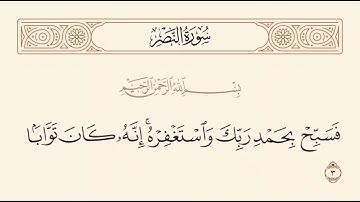 سُورَةُ النَّصْرِ
بِسْمِ اللَّهِ الرَّحْمَٰنِ الرَّحِيمِ
فَسَبِّحْ بِحَمْدِ رَبِّكَ وَاسْتَغْفِرْهُ ۚ إِنَّهُ كَانَ تَوَّابًا
٣